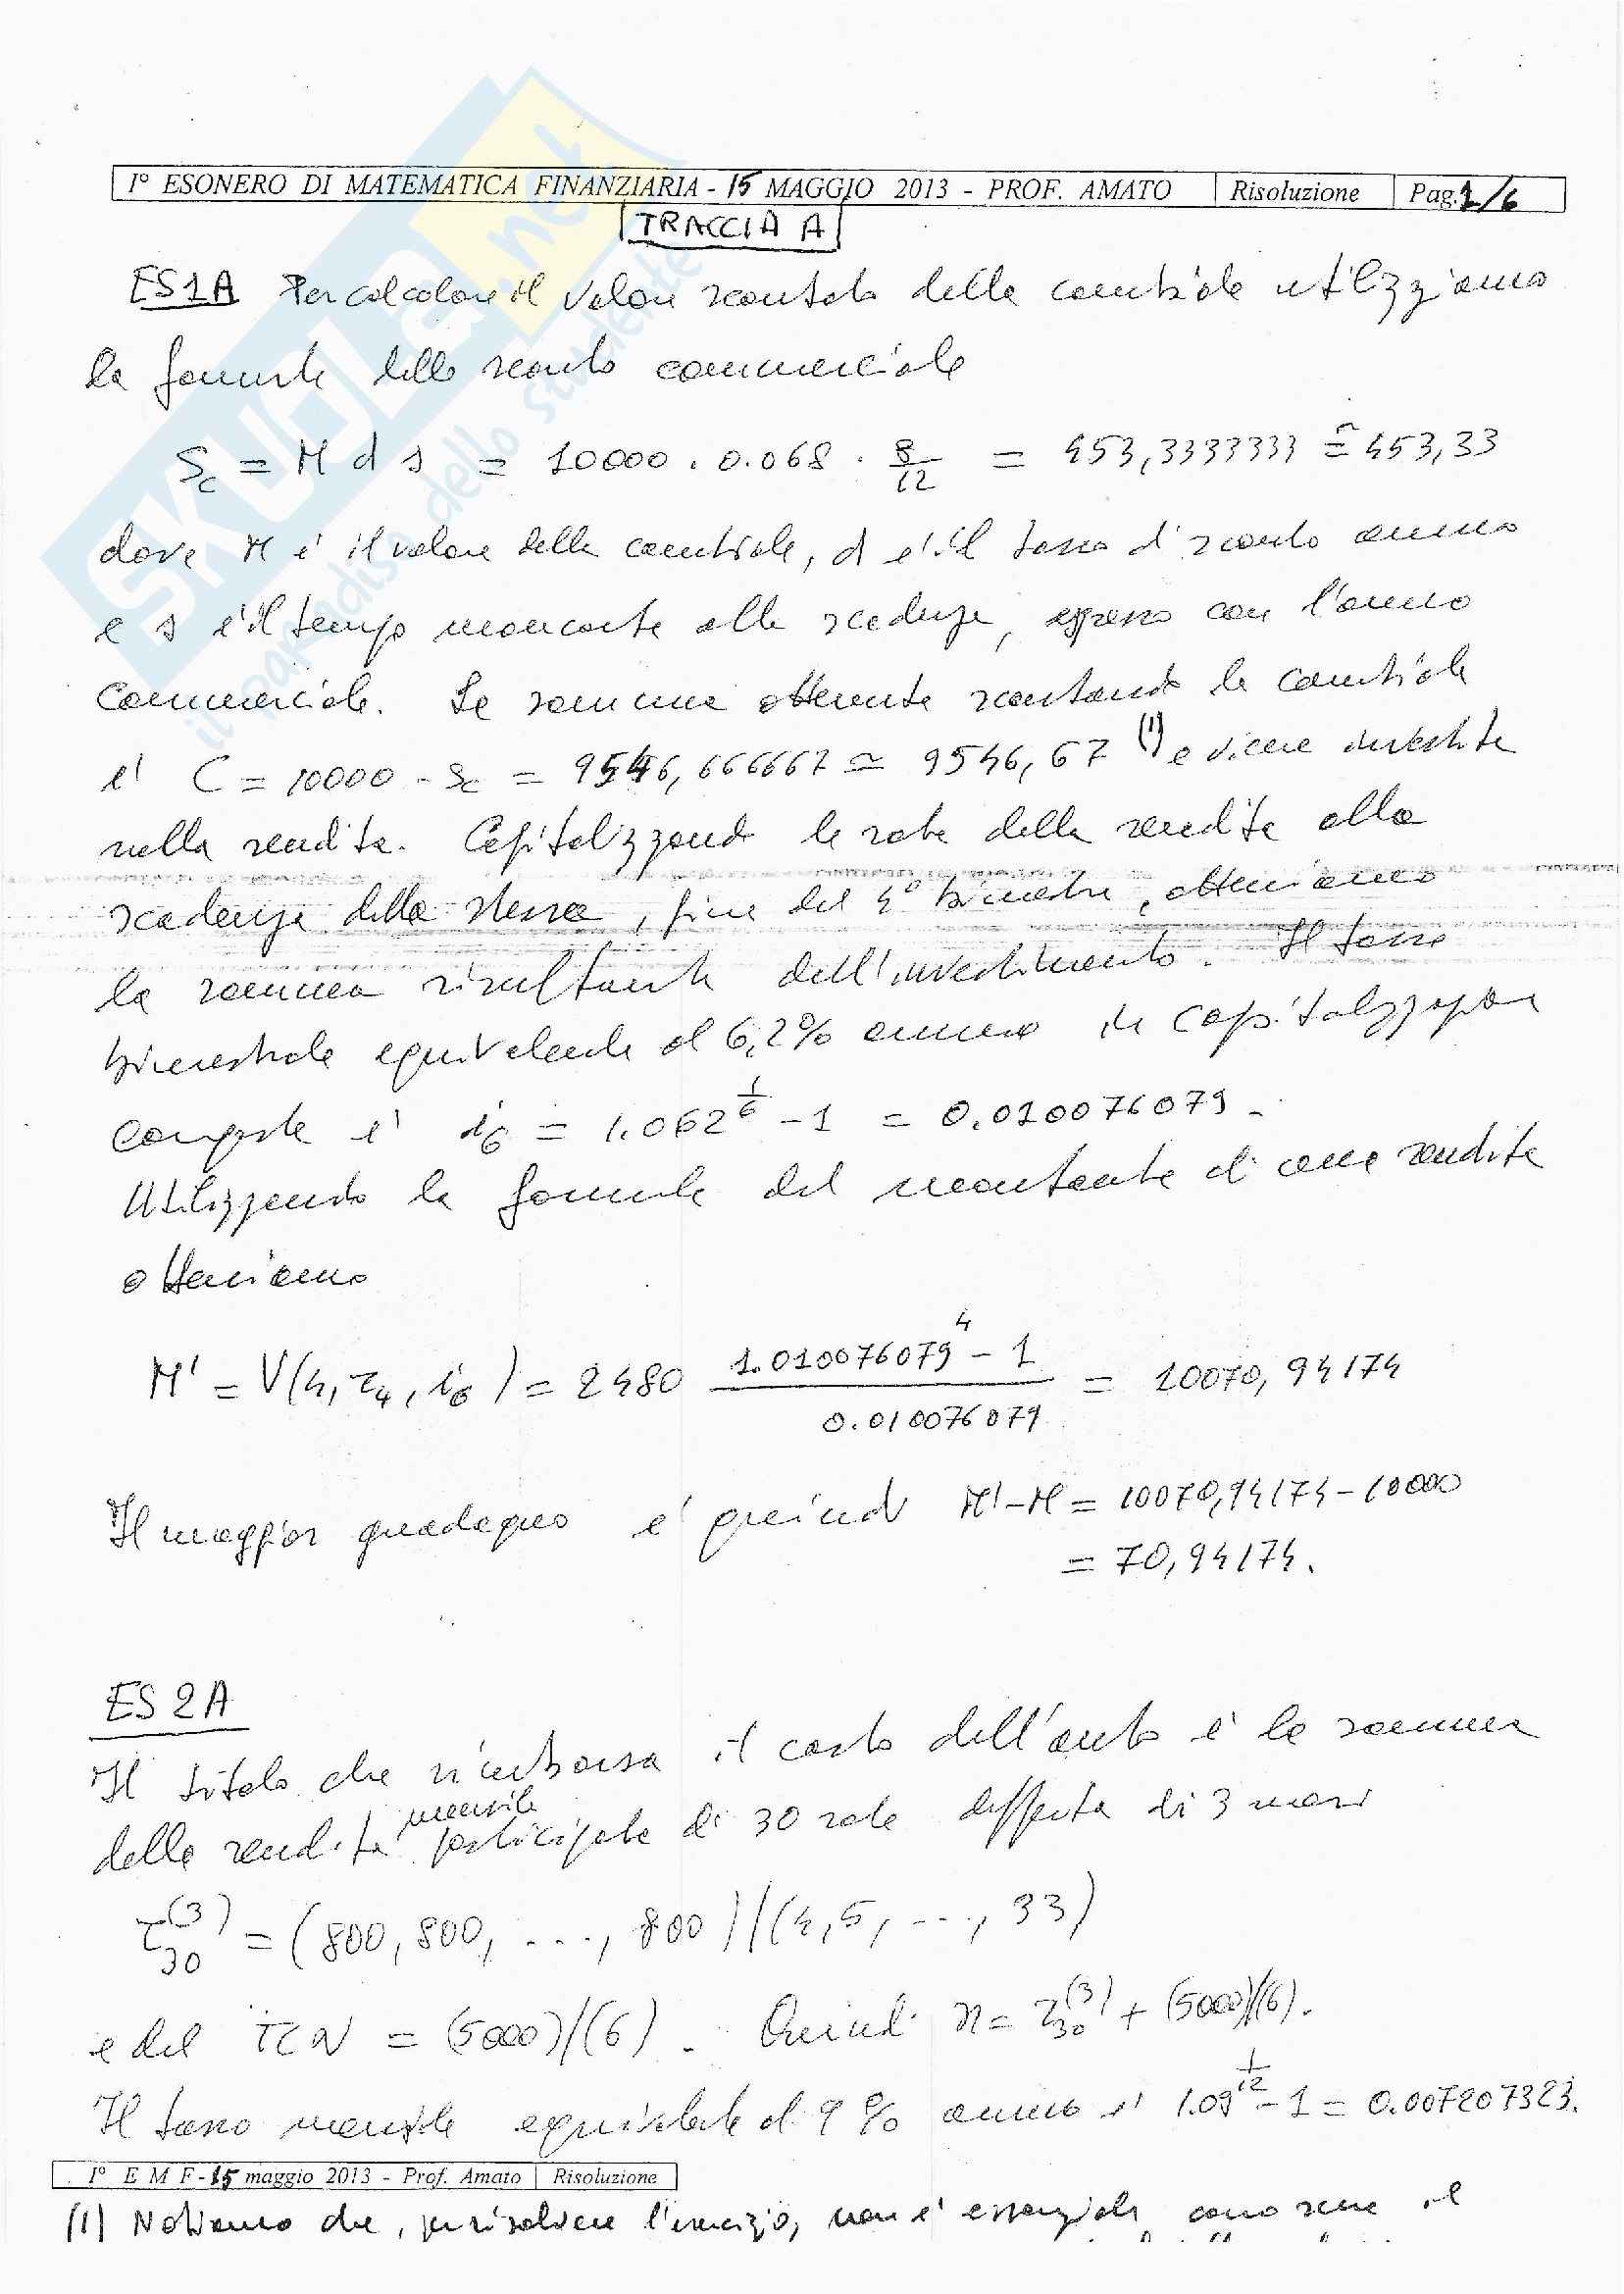 I° ESONERO DI MATEMATICA FINANZIARIA - 15 MAGGIO 2013 - PROF. AMATO Risoluzione Pag. 1/6
TRACCIA A
ES1A Per calcolare il valore scontato della cambiale utilizziamo
la formula dello sconto commerciale
Sc = M d s = 10000 . 0.068 . 8/12 = 453,3333333 ≅ 453,33
dove M e' il valore della cambiale, d e' il tasso di sconto annuo
e s e' il tempo mancante alla scadenza, espresso con l'anno
commerciale. La somma ottenuta scontando la cambiale
e' C = 10000 - Sc = 9546,666667 ≃ 9546,67 (1) e viene investita
nella rendita. Capitalizzando le rate della rendita alla
scadenza della stessa, fine del 4° bimestre, otteniamo
la somma risultante dell'investimento. Il tasso
bimestrale equivalente al 6,2% annuo in capitalizzazione
composta e' i6 = 1.062^(1/6) - 1 = 0.010076079.
Utilizzando la formula del montante di una rendita
otteniamo
M' = V(4, r4, i6) = 2480 (1.010076079^4 - 1)/0.010076079 = 10070,94174
Il maggior guadagno e' quindi M'-M = 10070,94174 - 10000
= 70,94174.
ES 2A
Il titolo che rimborsa il costo dell'auto e' la somma
della rendita mensile posticipata di 30 rate differita di 3 mesi
r30^(3) = (800, 800, ..., 800)/(4, 5, ..., 33)
e del TCN = (5000)/(6). Quindi x = r30^(3) + (5000)/(6).
Il tasso mensile equivalente al 9% annuo e' 1.09^(1/12) - 1 = 0.007207323.
I° E M F - 15 maggio 2013 - Prof. Amato Risoluzione
(1) Notiamo che, per risolvere l'esercizio, non e' essenziale conoscere il
SKUOLA.net
il paradiso dello studente